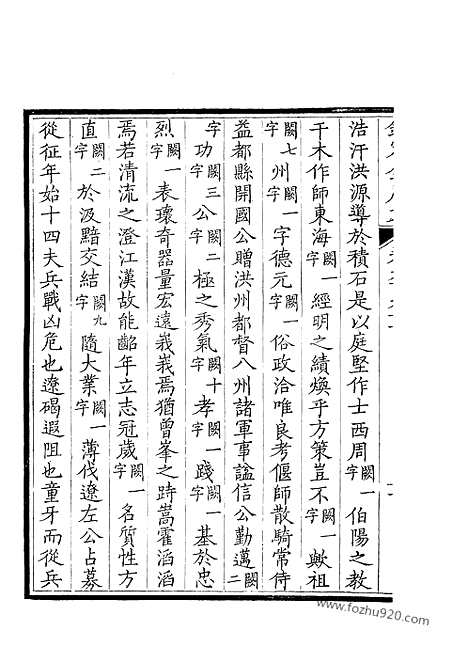 浩汗洪源導於積石是以庭堅作士西周闕一字伯陽之教
干木作師東海闕一字經明之績煥乎方策豈不闕一字歟祖
闕七字州闕一字字德元闕一字俗政洽唯良考偃師散騎常侍
益都縣開國公贈洪州都督八州諸軍事謚信公勤邁闕二
字功闕三字公闕二字極之秀氣闕十字孝闕一字踐闕一字基於忠
烈闕一字表瓌奇器量宏遠峩峩焉猶曾峯之跱嵩霍滔滔
焉若清流之澄江漢故能齠年立志冠歲闕一字名質性方
直闕二字於汲黯交結闕九字隨大業闕一字薄伐遼左公占募
從征年始十四夫兵戰凶危也遼碣遐阻也童牙而從兵
www.fozhu920.com